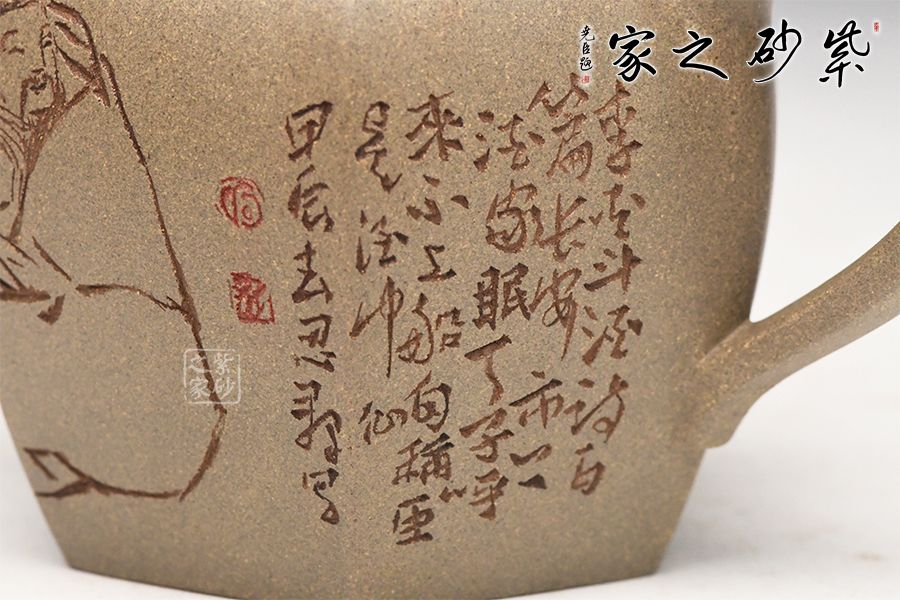 紫砂之家
堯臣題
李白斗酒诗百
篇长安市上
酒家眠天子呼
來不上船自稱臣
是酒中仙
甲辰
紫砂
之家